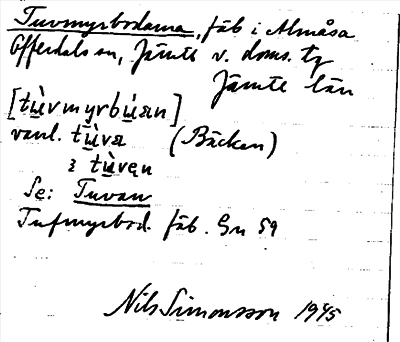 Tuvmyrbodarna, fäb i Almåsa
Offerdals sn, Jämtl v. doms. tg
Jämtl län
[tu̠̇vmyrbu̠̇an]
vanl. tu̠̇va (Bäcken)
i tu̠̇ven
Se: Tuvan
Tufmyrbod. fäb. Gn 59
Nils Simonsson 1945